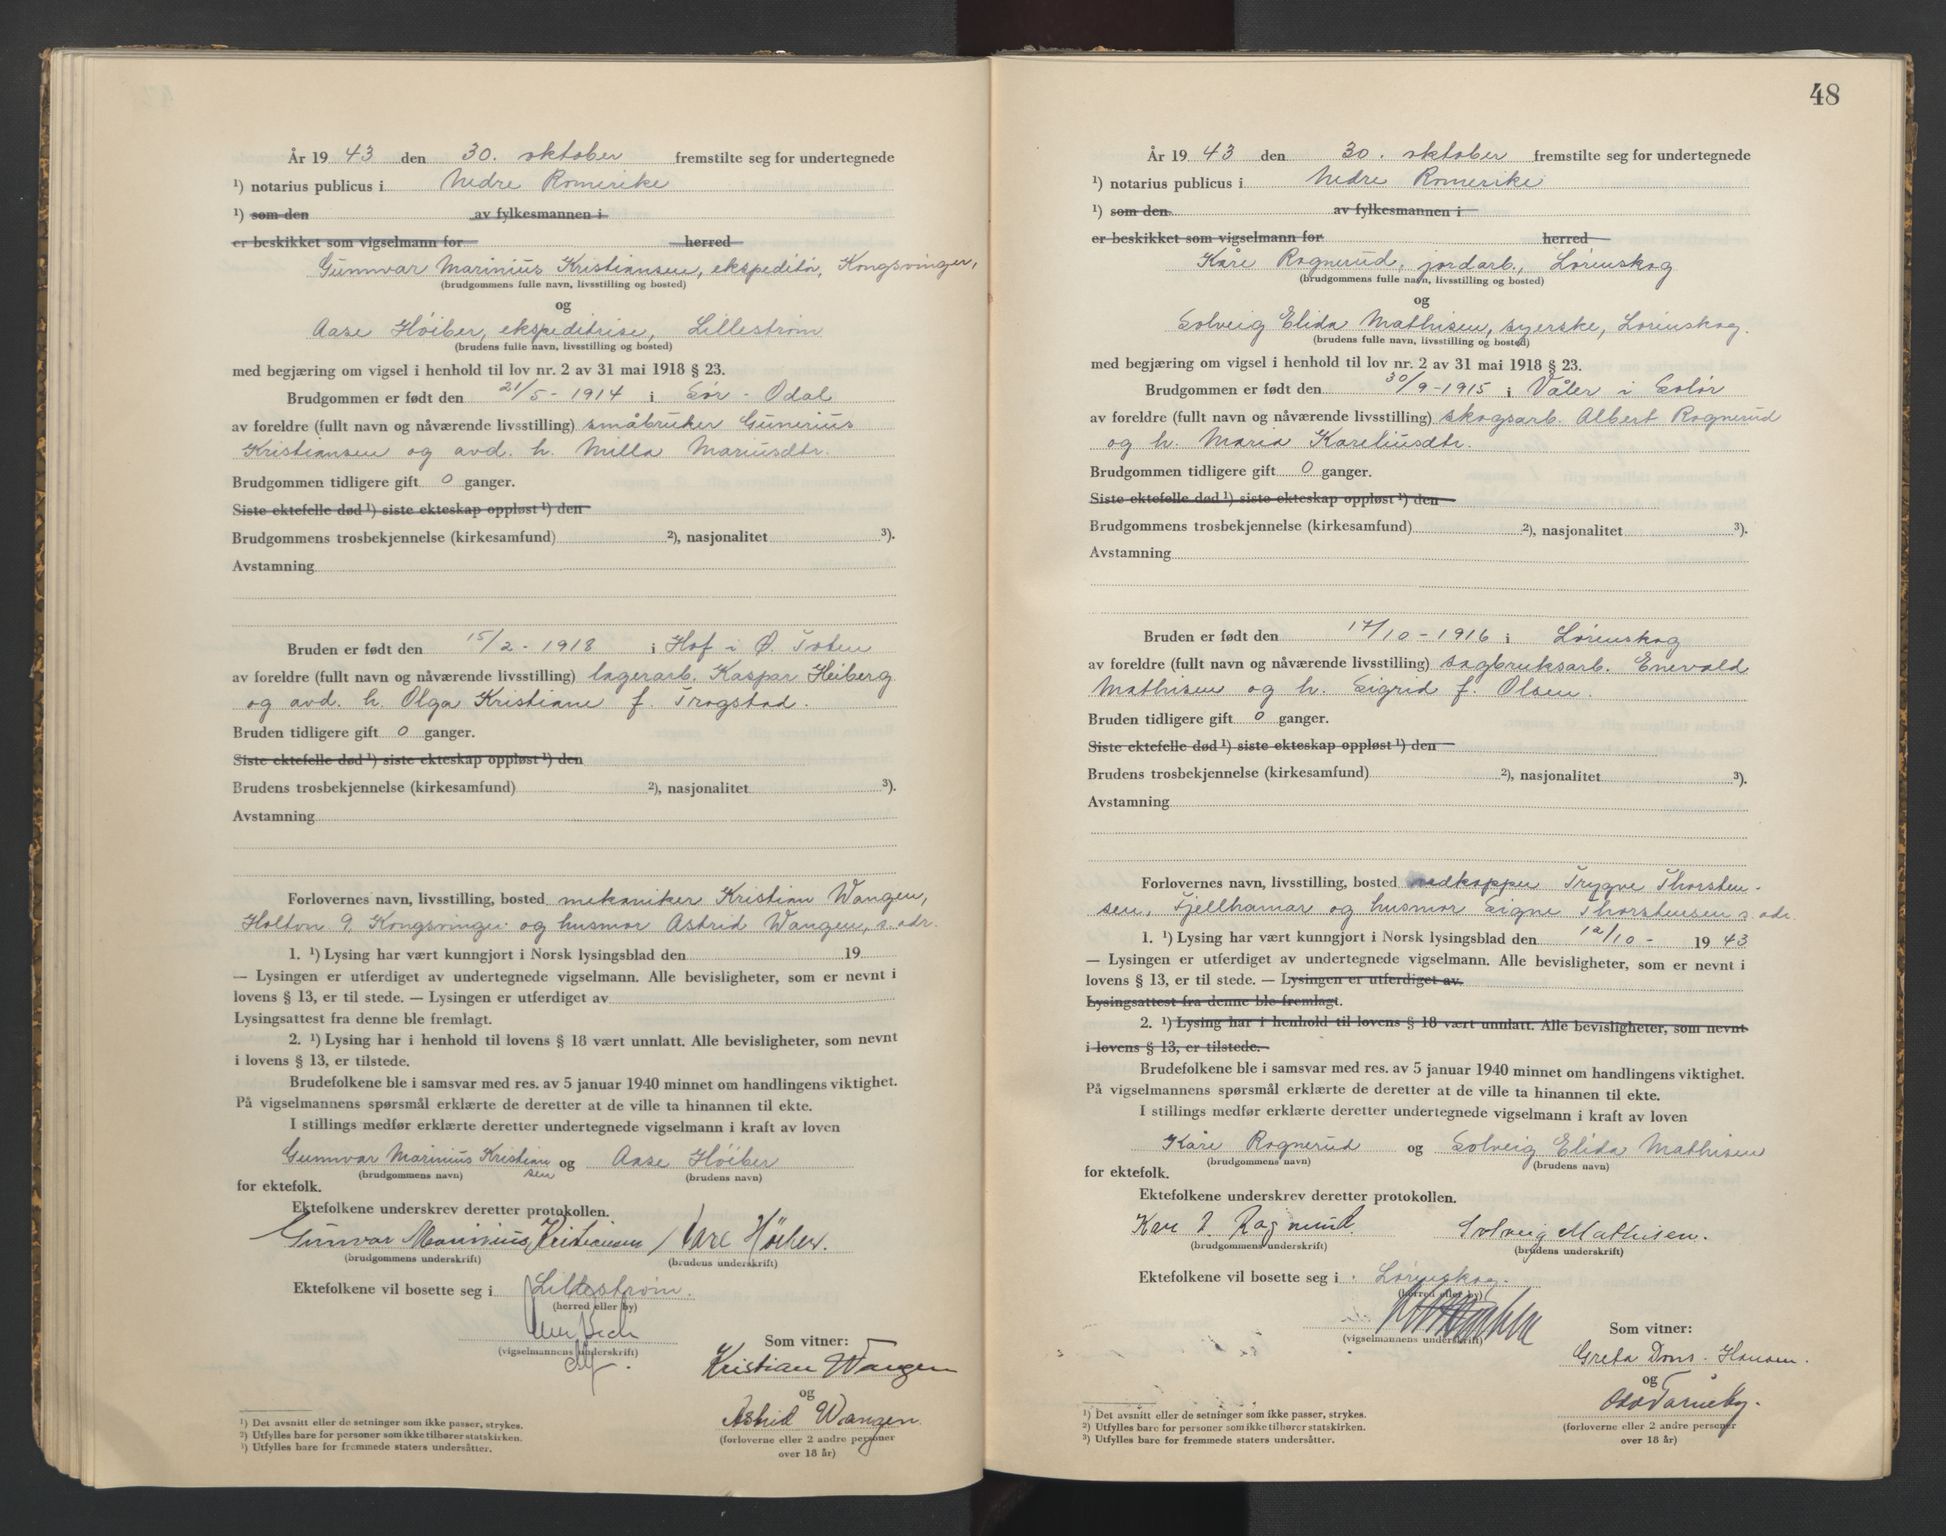 År 19 43 den 30. oktober fremstilte seg for undertegnede
¹) notarius publicus i Nedre Romerike
¹) som den av fylkesmannen i
er beskikket som vigselmann for herred
Gunnvar Marinius Kristiansen, ekspeditør, Kongsvinger,
(brudgommens fulle navn, livsstilling og bosted)
og
Aase Høiber, ekspeditrise, Lillestrøm
(brudens fulle navn, livsstilling og bosted)
med begjæring om vigsel i henhold til lov nr. 2 av 31 mai 1918 § 23.
Brudgommen er født den 21/5 - 1914 i Sør - Odal
av foreldre (fullt navn og nåværende livsstilling) småbruker Gunerius
Kristiansen og avd. h. Milla Mariusdtr.
Brudgommen tidligere gift 0 ganger.
Siste ektefelle død ¹) siste ekteskap oppløst ¹) den
Brudgommens trosbekjennelse (kirkesamfund) ²), nasjonalitet ³).
Avstamning
Bruden er født den 15/2 - 1918 i Hof i Ø. Toten
av foreldre (fullt navn og nåværende livsstilling) lagerarb. Kaspar Heiberg
og avd. h. Olga Kristiane f. Trogstad.
Bruden tidligere gift 0 ganger.
Siste ektefelle død ¹) siste ekteskap oppløst ¹) den
Brudens trosbekjennelse (kirkesamfund) ²), nasjonalitet ³).
Avstamning
Forlovernes navn, livsstilling, bosted mekaniker Kristian Wangen,
Holton g. Kongsvinger og husmor Astrid Wangen, s. adr.
1. ¹) Lysing har vært kunngjort i Norsk lysingsblad den 19
— Lysingen er utferdiget av undertegnede vigselmann. Alle bevisligheter, som er nevnt i
lovens § 13, er til stede. — Lysingen er utferdiget av
Lysingsattest fra denne ble fremlagt.
2. ¹) Lysing har i henhold til lovens § 18 vært unnlatt. Alle bevisligheter, som nevnt
i lovens § 13, er tilstede.
Brudefolkene ble i samsvar med res. av 5 januar 1940 minnet om handlingens viktighet.
På vigselmannens spørsmål erklærte de deretter at de ville ta hinannen til ekte.
I stillings medfør erklærte deretter undertegnede vigselmann i kraft av loven
Gunnvar Marinius Kristiansen og Aase Høiber
(brudgommens navn) (brudens navn)
for ektefolk.
Ektefolkene underskrev deretter protokollen.
Gunvar Marinius Kristiansen / Aase Høiber.
(brudgommens underskrift) (brudens underskrift)
Ektefolkene vil bosette seg i Lillestrøm.
(herred eller by)
(vigselmannens underskrift)
Som vitner:
Kristian Wangen
og
Astrid Wangen.
(forloverne eller 2 andre personer
over 18 år)
¹) Det avsnitt eller de setninger som ikke passer, strykes.
²) Utfylles bare for personer som ikke tilhører statskirken.
³) Utfylles bare for fremmede staters undersåtter.
48
År 19 43 den 30. oktober fremstilte seg for undertegnede
¹) notarius publicus i Nedre Romerike
¹) som den av fylkesmannen i
er beskikket som vigselmann for herred
Kåre Rognerud, jordarb., Lørenskog
(brudgommens fulle navn, livsstilling og bosted)
og
Solveig Elida Mathisen, syerske, Lørenskog.
(brudens fulle navn, livsstilling og bosted)
med begjæring om vigsel i henhold til lov nr. 2 av 31 mai 1918 § 23.
Brudgommen er født den 30/9 - 1915 i Våler i Solør
av foreldre (fullt navn og nåværende livsstilling) skogsarb. Albert Rognerud
og h. Maria Kareliusdtr.
Brudgommen tidligere gift 0 ganger.
Siste ektefelle død ¹) siste ekteskap oppløst ¹) den
Brudgommens trosbekjennelse (kirkesamfund) ²), nasjonalitet ³).
Avstamning
Bruden er født den 17/10 - 1916 i Lørenskog
av foreldre (fullt navn og nåværende livsstilling) sagbruksarb. Enevald
Mathisen og h. Sigrid f. Olsen.
Bruden tidligere gift 0 ganger.
Siste ektefelle død ¹) siste ekteskap oppløst ¹) den
Brudens trosbekjennelse (kirkesamfund) ²), nasjonalitet ³).
Avstamning
Forlovernes navn, livsstilling, bosted vedkapper Trygve Thorsten-
sen, Fjellhamar og husmor Signe Thorstensen s. adr.
1. ¹) Lysing har vært kunngjort i Norsk lysingsblad den 12/10 - 19 43
— Lysingen er utferdiget av undertegnede vigselmann. Alle bevisligheter, som er nevnt i
lovens § 13, er til stede. — Lysingen er utferdiget av
Lysingsattest fra denne ble fremlagt.
2. ¹) Lysing har i henhold til lovens § 18 vært unnlatt. Alle bevisligheter, som nevnt
i lovens § 13, er tilstede.
Brudefolkene ble i samsvar med res. av 5 januar 1940 minnet om handlingens viktighet.
På vigselmannens spørsmål erklærte de deretter at de ville ta hinannen til ekte.
I stillings medfør erklærte deretter undertegnede vigselmann i kraft av loven
Kåre Rognerud og Solveig Elida Mathisen
(brudgommens navn) (brudens navn)
for ektefolk.
Ektefolkene underskrev deretter protokollen.
Kåre Rognerud. Solveig Mathisen.
(brudgommens underskrift) (brudens underskrift)
Ektefolkene vil bosette seg i Lørenskog.
(herred eller by)
(vigselmannens underskrift)
Som vitner:
Greta Dons-Hansen.
og
(forloverne eller 2 andre personer
over 18 år)
¹) Det avsnitt eller de setninger som ikke passer, strykes.
²) Utfylles bare for personer som ikke tilhører statskirken.
³) Utfylles bare for fremmede staters undersåtter.